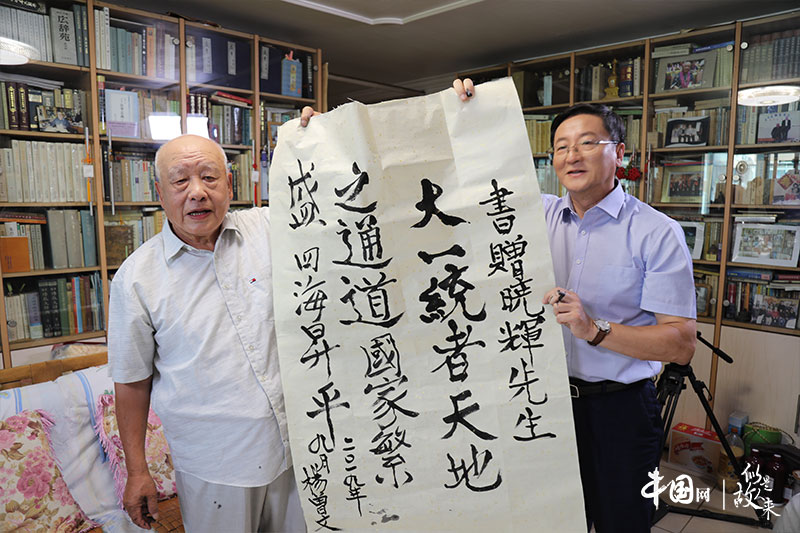 書贈曉輝先生
大一統者天地
之通道國家繁
盛四海昇平
二〇一九年
九月楊曾文
広辞苑
中国网
似是故来